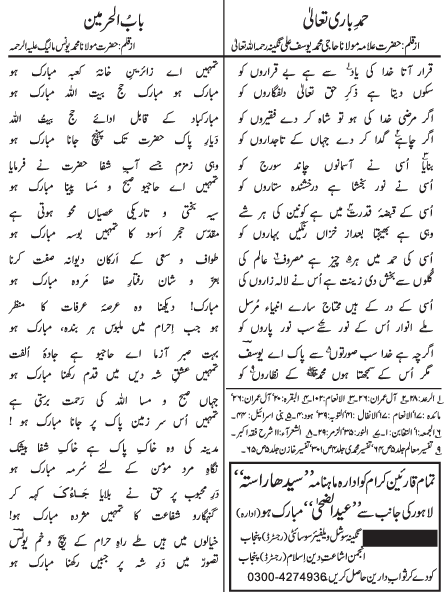 حمدِ باری تعالیٰ
از قلم: حضرت علامہ مولانا حاجی محمد یوسف علی نگینہ رحمۃ اللہ تعالیٰ
قرار آتا خدا کی یاد سے ہے بے قراروں کو
سکوں دیتا ہے ذکرِ حق تعالیٰ دلفگاروں کو
اگر مرضی خدا کی ہو تو شاہ کر دے فقیروں کو
اگر چاہے گدا کر دے جہاں کے تاجداروں کو
بنایا اُسی نے آسمانوں چاند سورج کو
اُسی نے نور بخشا ہے درخشندہ ستاروں کو
اُسی کے قبضۂ قدرت میں ہے کونین کی ہر شے
وہی ہے بھیجتا بعداز خزاں رنگیں بہاروں کو
اُسی کی حمد میں ہر چیز ہے مصروف عالم کی
گلوں سے بخش دی زینت ہے اُس نے لالہ زاروں کو
اُسی کے در کے ہیں محتاج سارے انبیاء مرسل
ملے انوار اُس کے نور سے سب نور پاروں کو
اگرچہ ہے خدا سب صورتوں سے پاک اے یوسف
مگر اُس کے سمجھتا ہوں محمدﷺ کے نظاروں کو
تمام قارئین کرام کو ادارہ ماہنامہ ”سیدھا راستہ“
لاہور کی جانب سے ”عید الضحیٰ“ مبارک ہو (ادارہ)
نگینہ سوشل ویلفیئر سوسائٹی (رجسٹرڈ) پنجاب
انجمن اشاعت دین اسلام (رجسٹرڈ) پنجاب
کو دے کر ثواب دارین حاصل کریں۔ 0300-4274936
باب الحرمین
از قلم: حضرت مولانا محمد یونس مالیگ علیہ الرحمہ
تمہیں اے زائرینِ خانۂ کعبہ مبارک ہو
مبارک ہو مبارک حجِ بیت اللہ مبارک ہو
مبارکباد کے قابل ادائے حجِ بیت اللہ
دیارِ پاک حضرت تک پہنچ جانا مبارک ہو
وہی زمزم جسے آبِ شفا حضرت نے فرمایا
تمہیں اے حاجیو صبح و مسا پینا مبارک ہو
سیہ بختی و تاریکیٔ عصیاں محو ہوتی ہے
مقدّس حجرِ اسود کا تمہیں بوسہ مبارک ہو
طواف و سعی کے ارکان دیوانہ صفت کرنا
بعز و شان رفتارِ صفا مروہ مبارک ہو
مبارک! دیکھنا وہ عرصۂ عرفات کا منظر
ہو جب احرام میں ملبوس ہر بندہ، مبارک ہو
بہت صبر آزما اے حاجیو ہے جادۂ الفت
تمہیں عشقِ شہِ دیں میں قدم رکھنا مبارک ہو
جہاں صبح و مسا اللہ کی رحمت برستی ہے
تمہیں اُس سر زمینِ پاک پر جانا مبارک ہو!
مدینہ کی وہ خاکِ پاک ہے خاکِ شفا بیشک
نگاہِ مردِ مؤمن کے لئے سُرمہ مبارک ہو
درِ محبوب پر حق نے بلایا جَاءُوکَ کہہ کر
گنہگارو شفاعت کا تمہیں مژدہ مبارک ہو!
خیالوں میں ہیں طے راہِ حرم کے پیچ و خم یونس
تصوّر میں درِ شہ پر جبیں رکھنا مبارک ہو